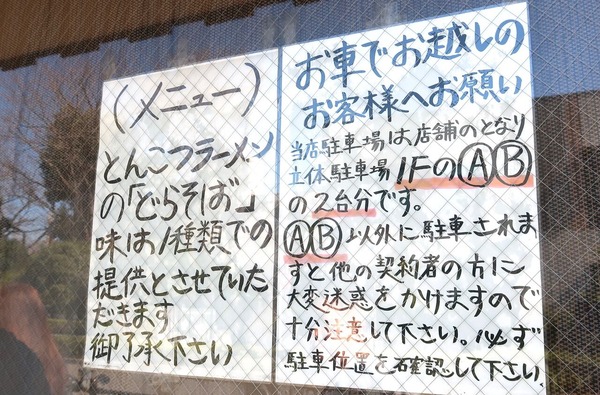 (メニュー)
とんこつラーメン
の「どらそば」
味は1種類での
提供とさせていた
だきます
御了承下さい
お車でお越しの
お客様へお願い
当店駐車場は店舗のとなり
立体駐車場1FのⒶⒷ
の2台分です。
ⒶⒷ以外に駐車されま
すと他の契約者の方に
大変迷惑をかけますので
十分注意して下さい。必ず
駐車位置を確認して下さい。